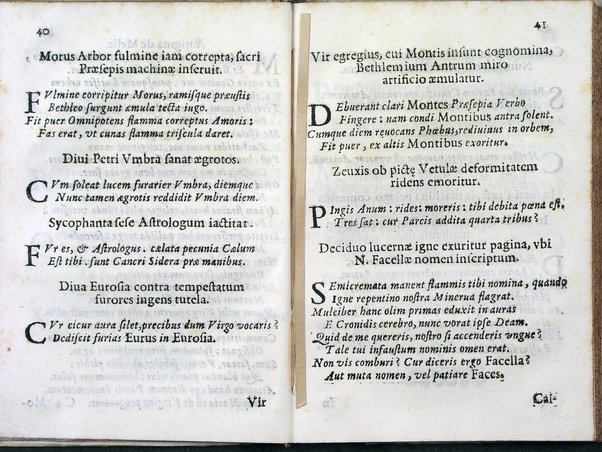 40
Morus Arbor fulmine iam correpta, sacri
Præsepis machinæ inseruit.
FVlmine corripitur Morus, ramisque præustis
Bethleo surgunt æmula tecta iugo.
Fit puer Omnipotens flamma correptus Amoris:
Fas erat, vt cunas flamma trisulca daret.
Diui Petri Vmbra sanat ægrotos.
CVm soleat lucem furarier Vmbra, diemque:
Nunc tamen ægrotis reddidit Vmbra diem.
Sycophanta sese Astrologum iactitat.
FVr es, & Astrologus: cælata pecunia Cælum
Est tibi: sunt Cancri Sidera præ manibus.
Diua Eurosia contra tempestatum
furores ingens tutela.
CVr cicur aura silet, precibus dum Virgo vocaris?
Dedifcit furias Eurus in Eurosia.
Vir
41
Vir egregius, cui Montis insunt cognomina,
Bethlemium Antrum miro
artificio æmulatur.
DEbuerant clari Montes Præsepia Verbo
Fingere: nam condi Montibus antra solent.
Cumque diem reuocans Phœbus, rediuiuus in orbem,
Fit puer, ex altis Montibus exoritur.
Zeuxis ob pictę Vetulæ deformitatem
ridens emoritur.
PIngis Anum: rides: moreris: tibi debita pœna est,
Tres sat: cur Parcis addita quarta tribus?
Deciduo lucernæ igne exuritur pagina, vbi
N. Facellæ nomen inscriptum.
SEmicremata manent flammis tibi nomina, quando
Igne repentino nostra Minerua flagrat.
Mulciber hanc olim primas eduxit in auras
E Cronidis cerebro, nunc vorat ipse Deam.
Quid de me quereris, nostro si accenderis vngue?
Tale tui infaustum nominis omen erat.
Non vis comburi? Cur diceris ergo Facella?
Aut muta nomen, vel patiare Faces.
Cal-